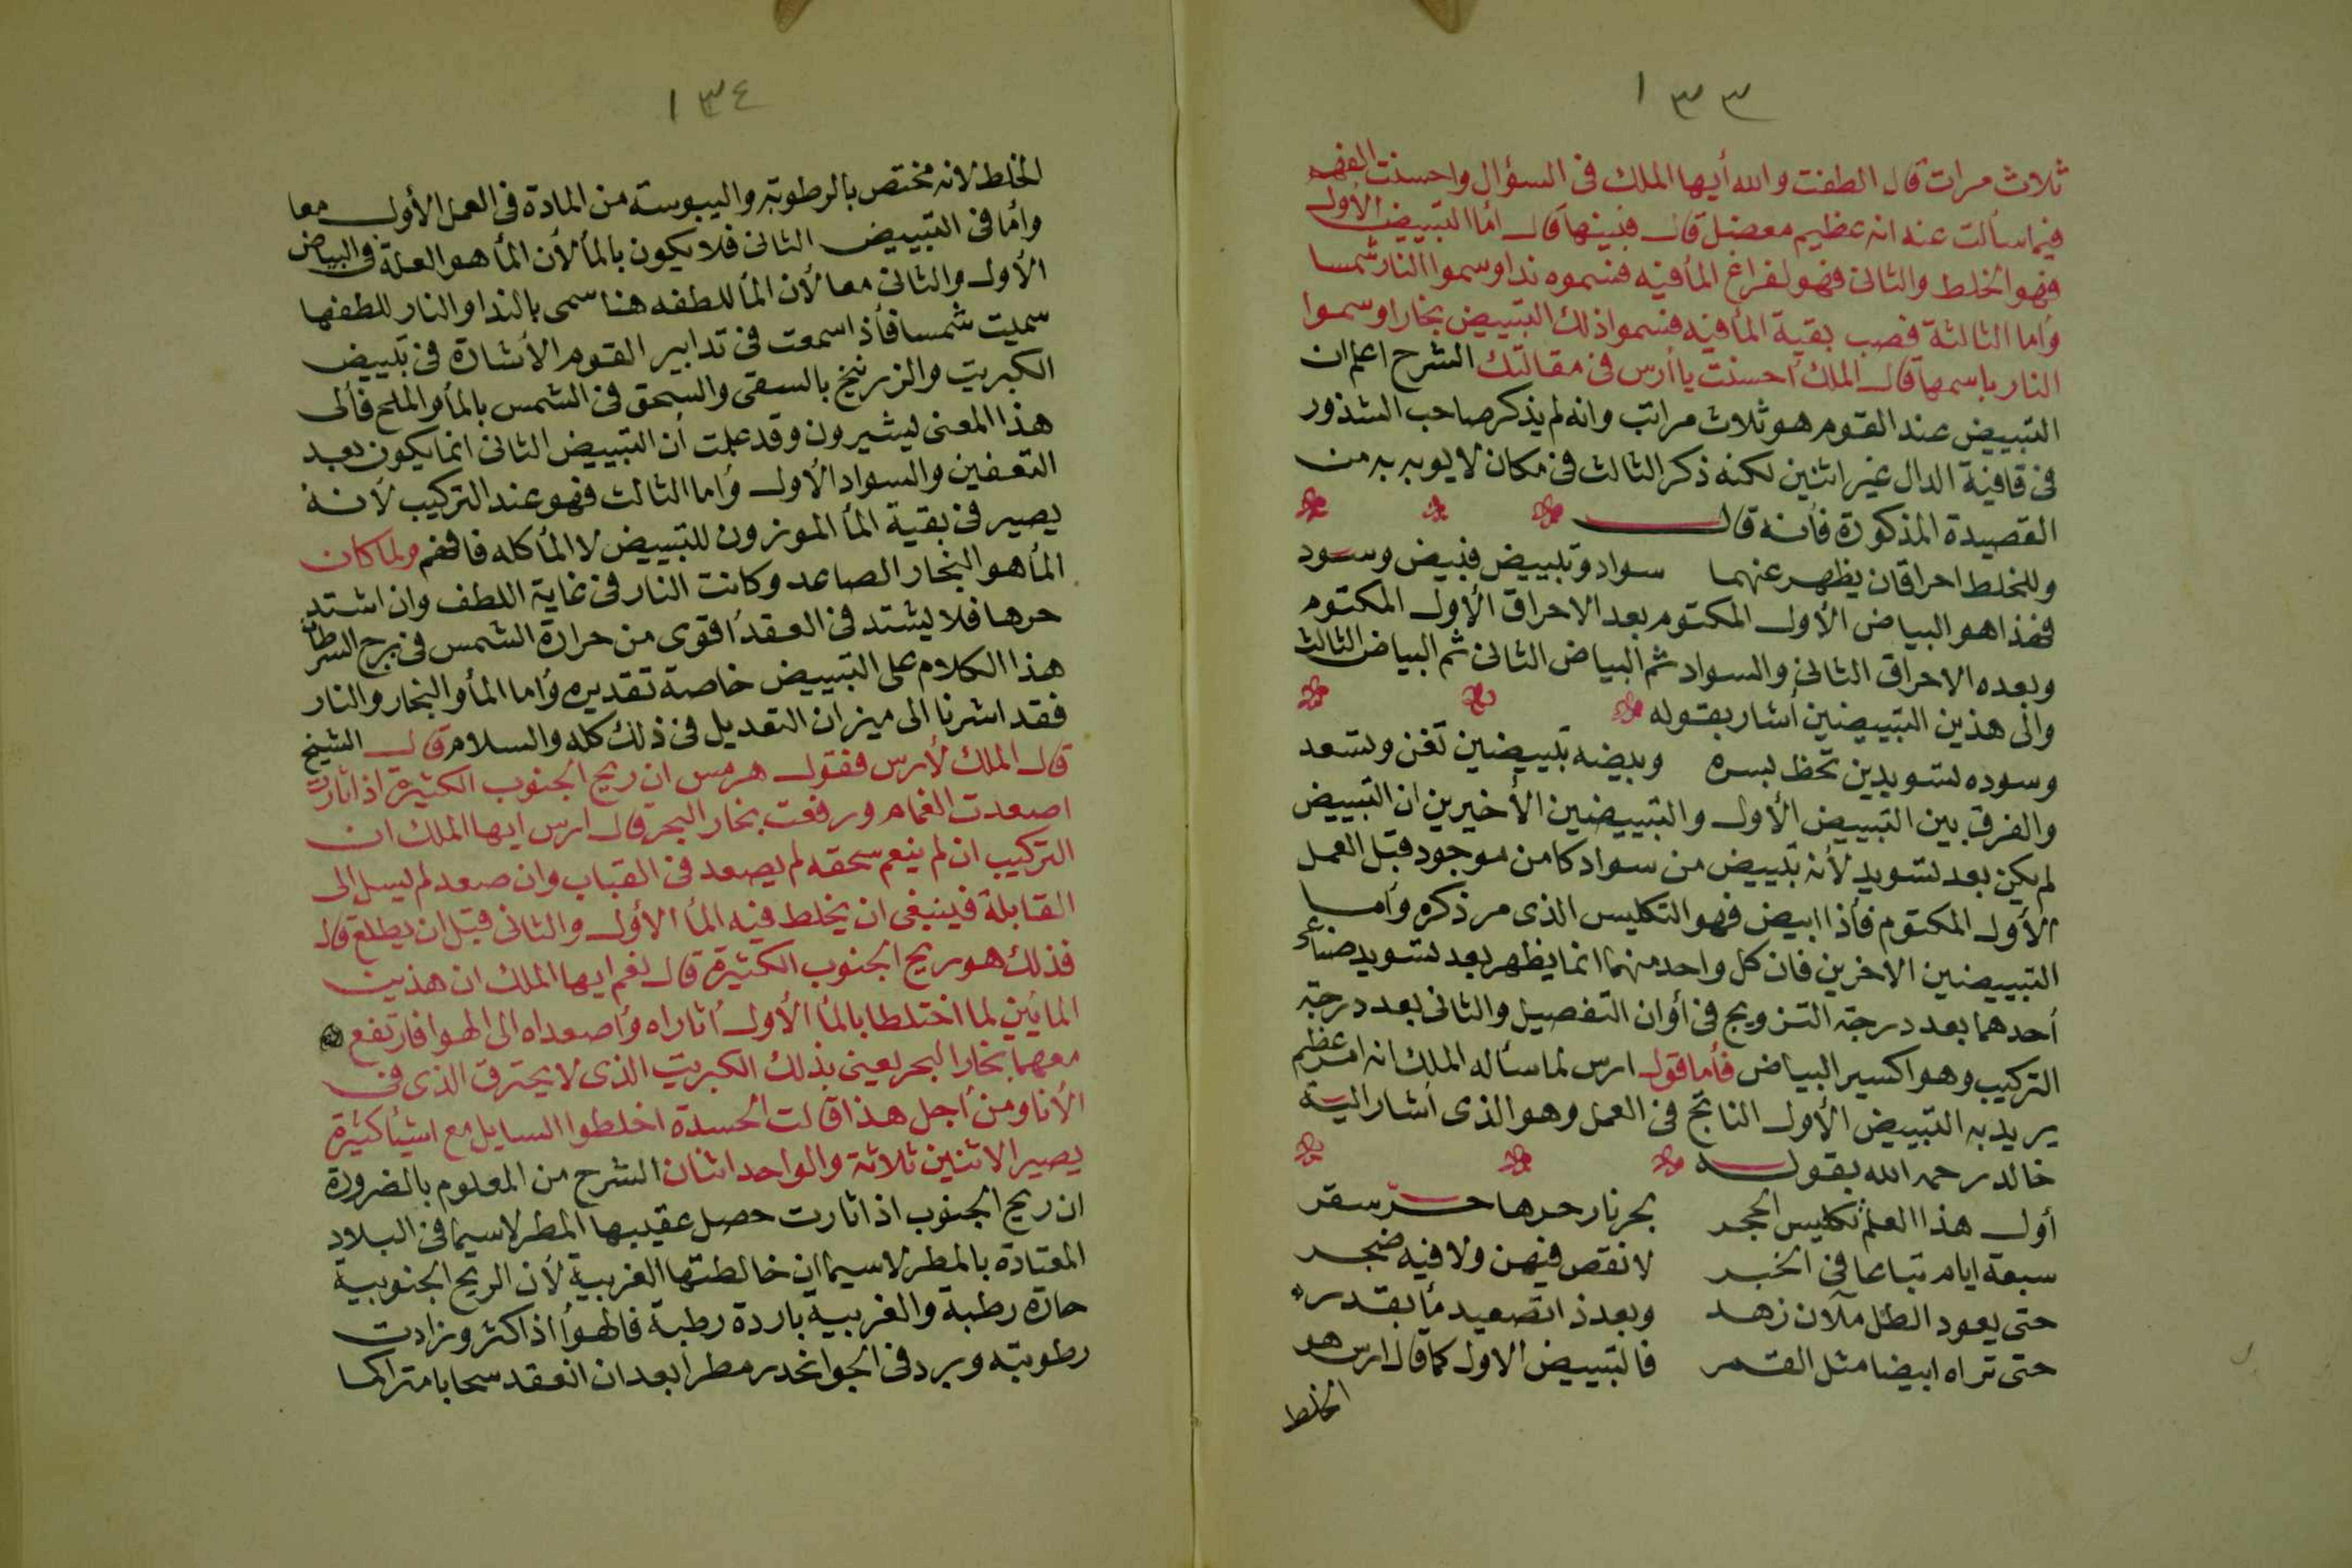 ١٣٣
ثلاث مرات قال الطفت والله أيها الملك فى السؤال واحسنت الفهم
فيما سألت عنه انه عظيم معضل قال فبينها قال أما التبييض الأول
فهو الخلط والثانى فهو لفراغ المأ فيه فسموه ندا وسموا النار شمسا
وأما الثالثة فصب بقية المأ فيه فسموا ذلك التبييض بخارا وسموا
النار باسمها قال الملك أحسنت يا أرس فى مقالتك الشرح اعلم ان
التبييض عند القوم هو ثلاث مراتب وانه لم يذكر صاحب الشذور
فى قافية الدال غير اثنين لكنه ذكر الثالث فى مكان لا يوبه به من
القصيدة المذكورة فأنه قال
وللخلط احراقان يظهر عنهما سواد وتبييض فبيض وسود
فهذا هو البياض الأول المكتوم بعد الاحراق الأول المكتوم
وبعده الاحراق الثانى والسواد ثم البياض الثانى ثم البياض الثالث
والى هذين التبييضين أشار بقوله
وسوده تسويدين تحظ بسره وبيضه تبييضين تغن وتسعد
والفرق بين التبييض الأول والتبييضين الأخيرين ان التبييض
لم يكن بعد تسويد لأنه تبييض من سواد كامن موجود قبل العمل
الأول المكتوم فأذا ابيض فهو التكليس الذى مر ذكره وأما
التبييضين الاخرين فان كل واحد منهما انما يظهر بعد تسويد صناعى
أحدهما بعد درجة التزويج فى أوان التفصيل والثانى بعد درجة
التركيب وهو اكسير البياض فأما قول ارس لما سأله الملك انه امر عظيم
يريد به التبييض الأول الناتج فى العمل وهو الذى أشار اليه
خالد رحمه الله بقوله
أول هذا العلم تكليس الحجر بحر نار حرها حر سقر
سبعة ايام تباعا فى الخبر لا نقص فيهن ولا فيه ضجر
حتى يعود الطل ملآن زهد وبعد ذا تصعيد مأ بقدر
حتى تراه ابيضا مثل القمر فالتبييض الاول كما قال ارس هو
الخلط
١٣٤
الخلط لانه مختص بالرطوبة واليبوسة من المادة فى العمل الأول معا
وأما فى التبييض الثانى فلا يكون بالمأ لأن المأ هو العلة فى البياض
الأول والثانى معا لأن المأ للطفه هنا سمى بالندا والنار للطفها
سميت شمسا فأذا سمعت فى تدابير القوم الأشارة فى تبييض
الكبريت والزرنيخ بالسقى والسحق فى الشمس بالمأ والملح فألى
هذا المعنى يشيرون وقد علمت أن التبييض الثانى انما يكون بعد
التعفين والسواد الأول وأما الثالث فهو عند التركيب لأنه
يصير فى بقية المأ الموزون للتبييض لا المأ كله فافهم ولما كان
المأ هو البخار الصاعد وكانت النار فى غاية اللطف وان اشتد
حرها فلا يشتد فى العقد أقوى من حرارة الشمس فى برج السرطان
هذا الكلام على التبييض خاصة تقديره وأما المأ والبخار والنار
فقد اشرنا الى ميزان التعديل فى ذلك كله والسلام قال الشيخ
قال الملك لأرس فقول هرمس ان ريح الجنوب الكثيرة اذا ثارت
اصعدت الغمام ورفعت بخار البحر قال ارس ايها الملك ان
التركيب ان لم ينعم سحقه لم يصعد فى القباب وان صعد لم يسل الى
القابلة فينبغى ان يخلط فيه المأ الأول والثانى قبل ان يطلع قال
فذلك هو ريح الجنوب الكثيرة قال نعم ايها الملك ان هذين
المأين لما اختلطا بالمأ الأول أثاراه وأصعداه الى الهوا فارتفع
معهما بخار البحر يعنى بذلك الكبريت الذى لا يحترق الذى فى
الأنا ومن أجل هذا قالت الحسدة اخلطوا السايل مع اشيأ كثيرة
يصير الاثنين ثلاثة والواحد اثنان الشرح من المعلوم بالضرورة
ان ريح الجنوب اذا ثارت حصل عقيبها المطر لاسيما فى البلاد
المعتادة بالمطر لاسيما ان خالطتها الغربية لأن الريح الجنوبية
حارة رطبة والغربية باردة رطبة فالهوأ اذا كثر وزادت
رطوبته وبرد فى الجو انحدر مطرا بعد ان انعقد سحابا متراكما